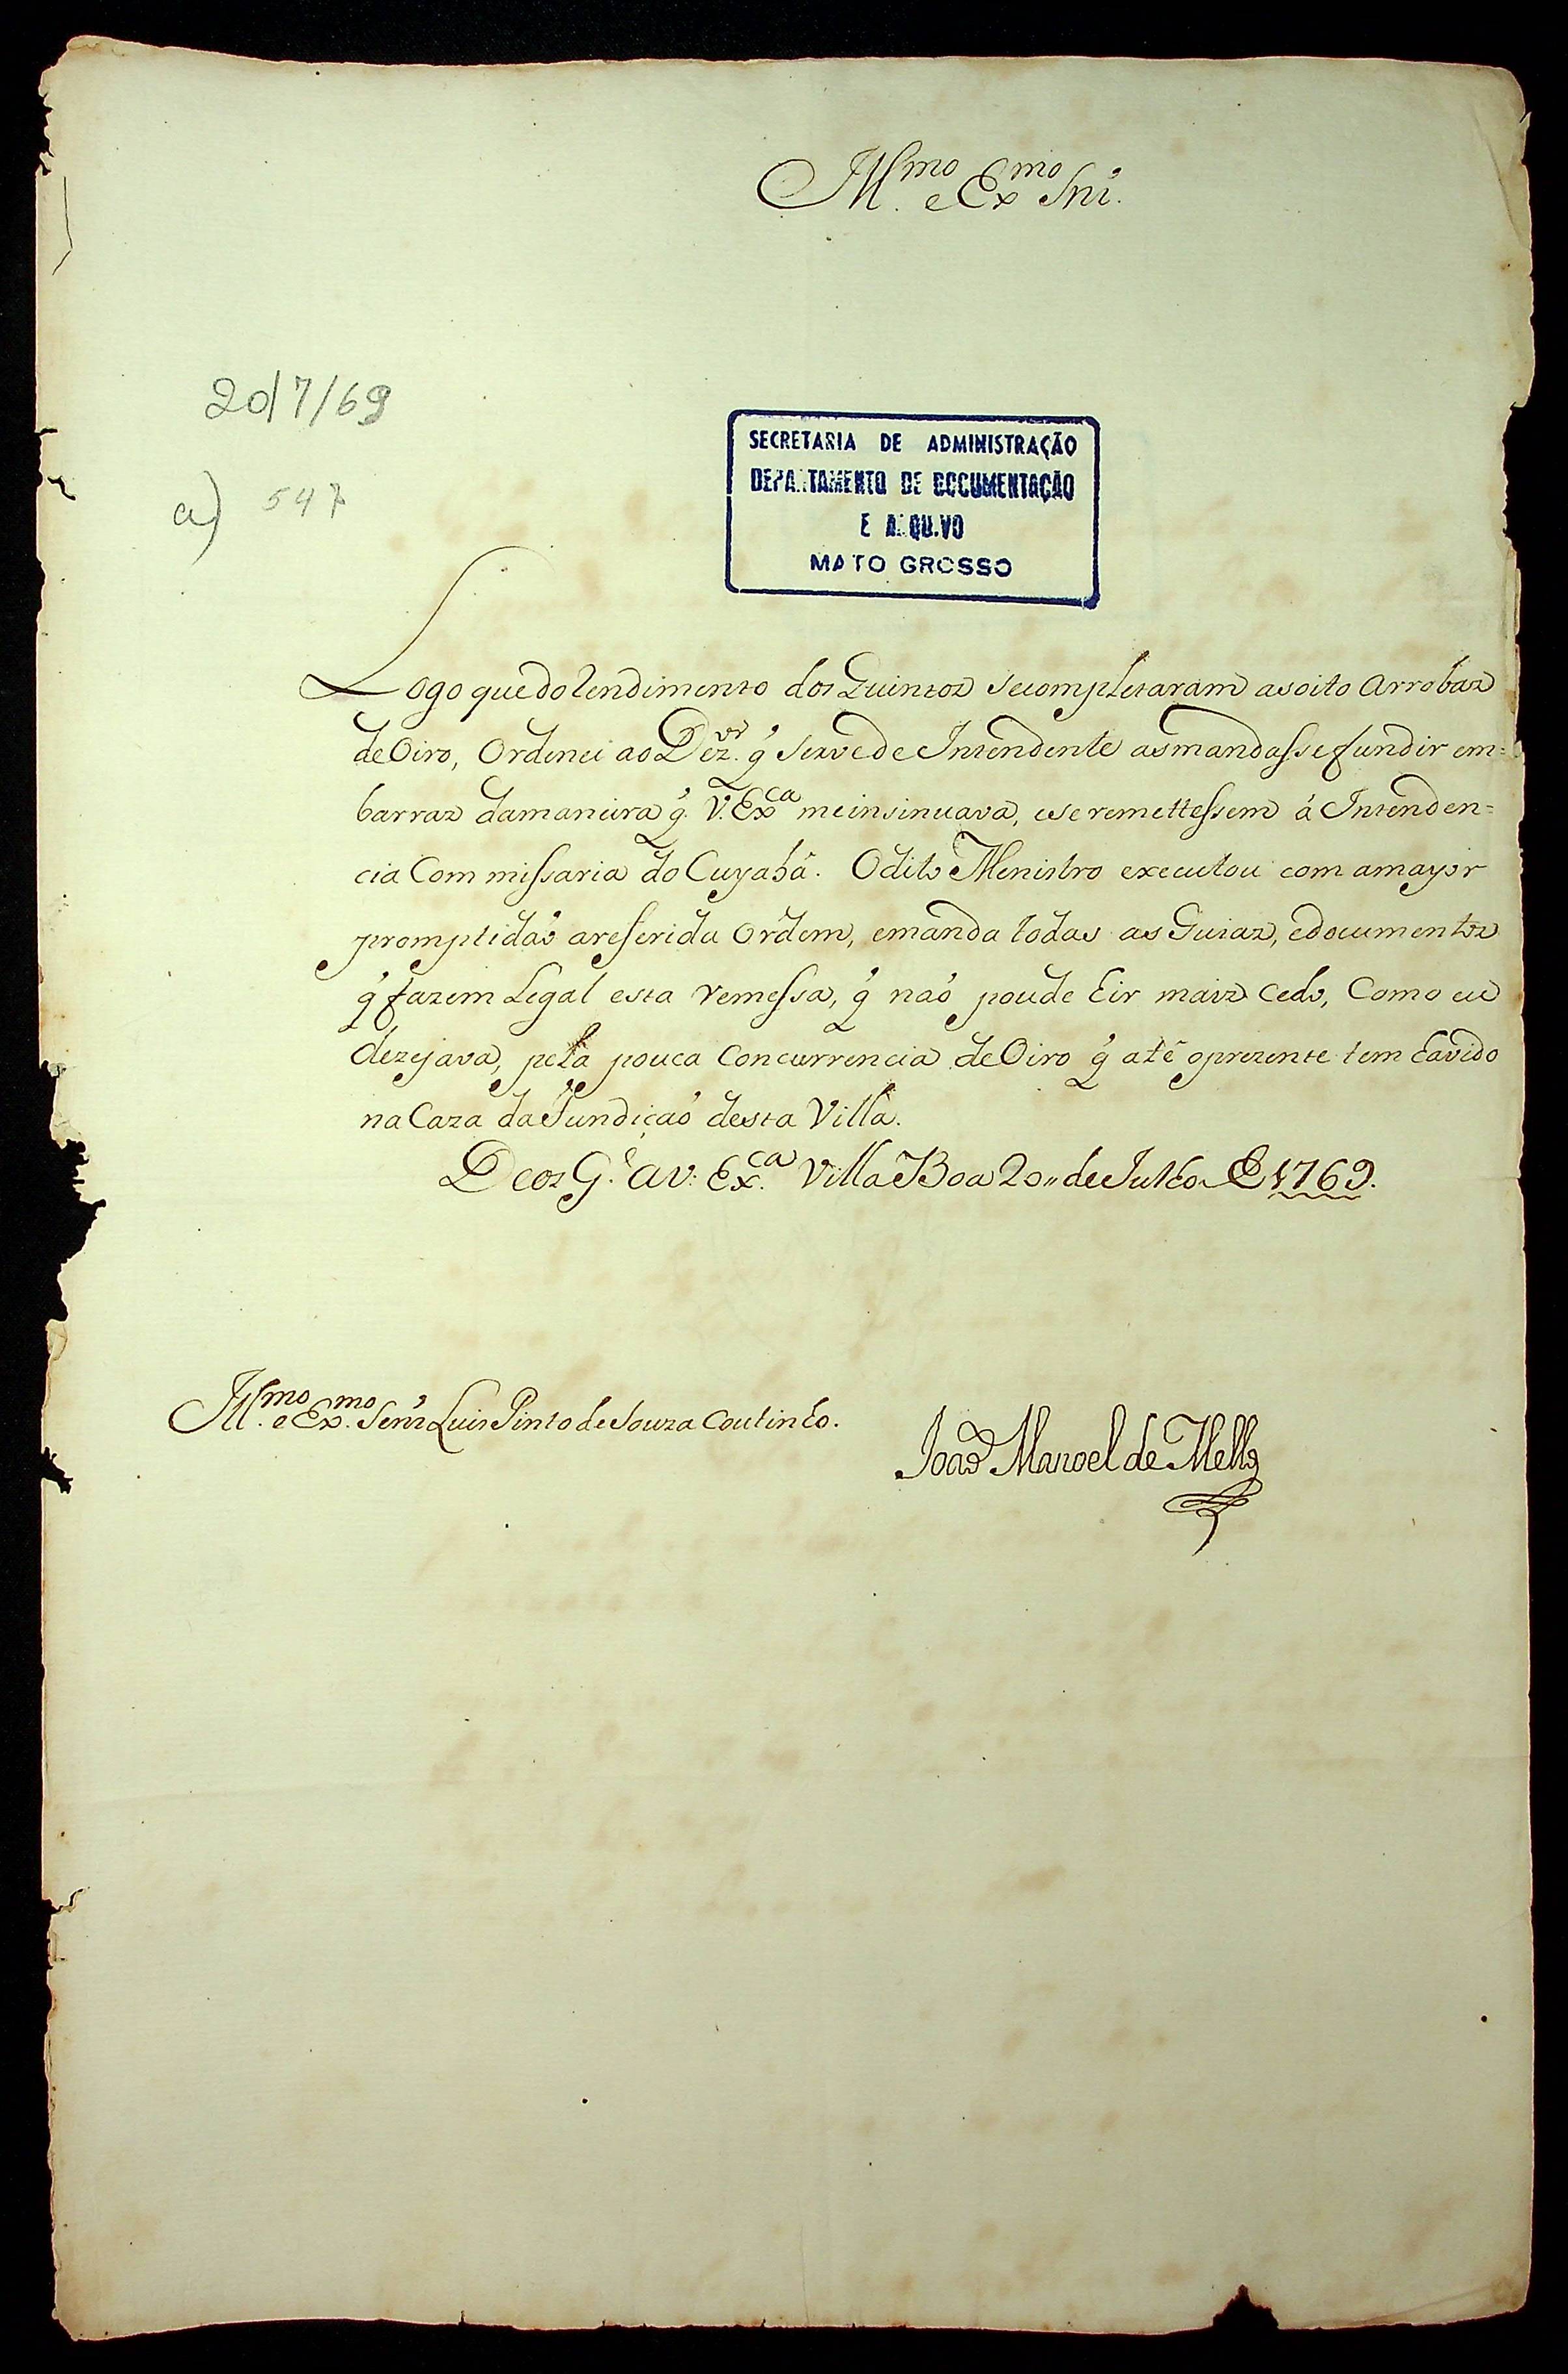 Ill.mo e Ex.mo Snr.
20/7/69
a) 547
SECRETARIA DE ADMINISTRAÇÃO
DEPARTAMENTO DE DOCUMENTAÇÃO
E ARQUIVO
MATO GROSSO
Logo que do rendimento dos Quintos se completaram as oito Arrobas
de Oiro, Ordenei ao Dez.or q̃ serve de Intendente as mandasse fundir em=
barras da maneira q̃ V. Ex.ca me insinuava, e se remettessem á Intenden=
cia Commissaria do Cuyabá. O dito Menistro executou com a mayor
promptidaõ a referida ordem, e manda todas as Guias, e documentos
q̃ fazem Legal esta remessa, q̃ naõ poude hir mais cedo, como eu
dezejava, pela pouca concurrencia de Oiro q̃ até o prezente tem havido
na Caza da Fundiçaõ desta Villa.
Deos G.e a V. Ex.ca Villa Boa 20 de Julho de 1769.
Ill.mo e Ex.mo Senr. Luis Pinto de Souza Coutinho.
Joaõ Manoel de Mello